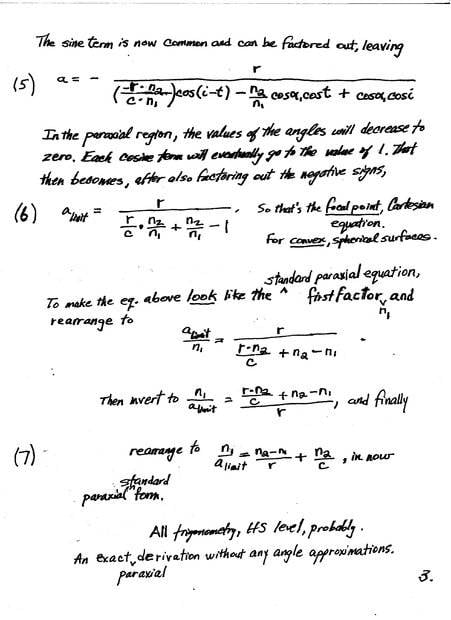 The sine term is now common and can be factored out, leaving
(5) a = - r / ((-r·n₂ / c·n₁) cos(i-t) - n₂/n₁ cosα, cost + cosα, cosi)
In the paraxial region, the values of the angles will decrease to
zero. Each cosine term will eventually go to the value of 1. That
then becomes, after also factoring out the negative signs,
(6) a_limit = r / (r/c · n₂/n₁ + n₂/n₁ - 1) . So that's the focal point, Cartesian
equation.
For convex, spherical surfaces.
To make the eq. above look like the ^ standard paraxial equation, first factor n₁ and
rearrange to
a_limit / n₁ = r / (r·n₂/c + n₂ - n₁) .
Then invert to n₁ / a_limit = (r·n₂/c + n₂ - n₁) / r , and finally
(7) rearange to n₁ / a_limit = (n₂-n₁) / r + n₂ / c , in now
standard
paraxial ^ form.
All trigonometry, HS level, probably.
An exact ^ paraxial derivation without any angle approximations.
3.